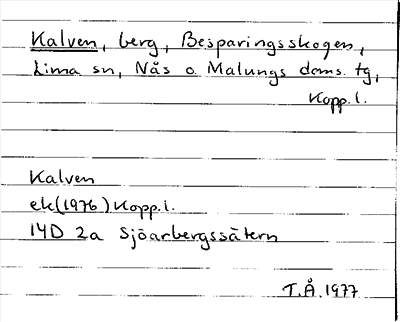 Kalven, berg, Besparingsskogen,
Lima sn, Nås o. Malungs doms. tg,
Kopp.l.
Kalven
ek(1976) Kopp.l.
14D 2a Sjöarbergssätern
T.Å.1977